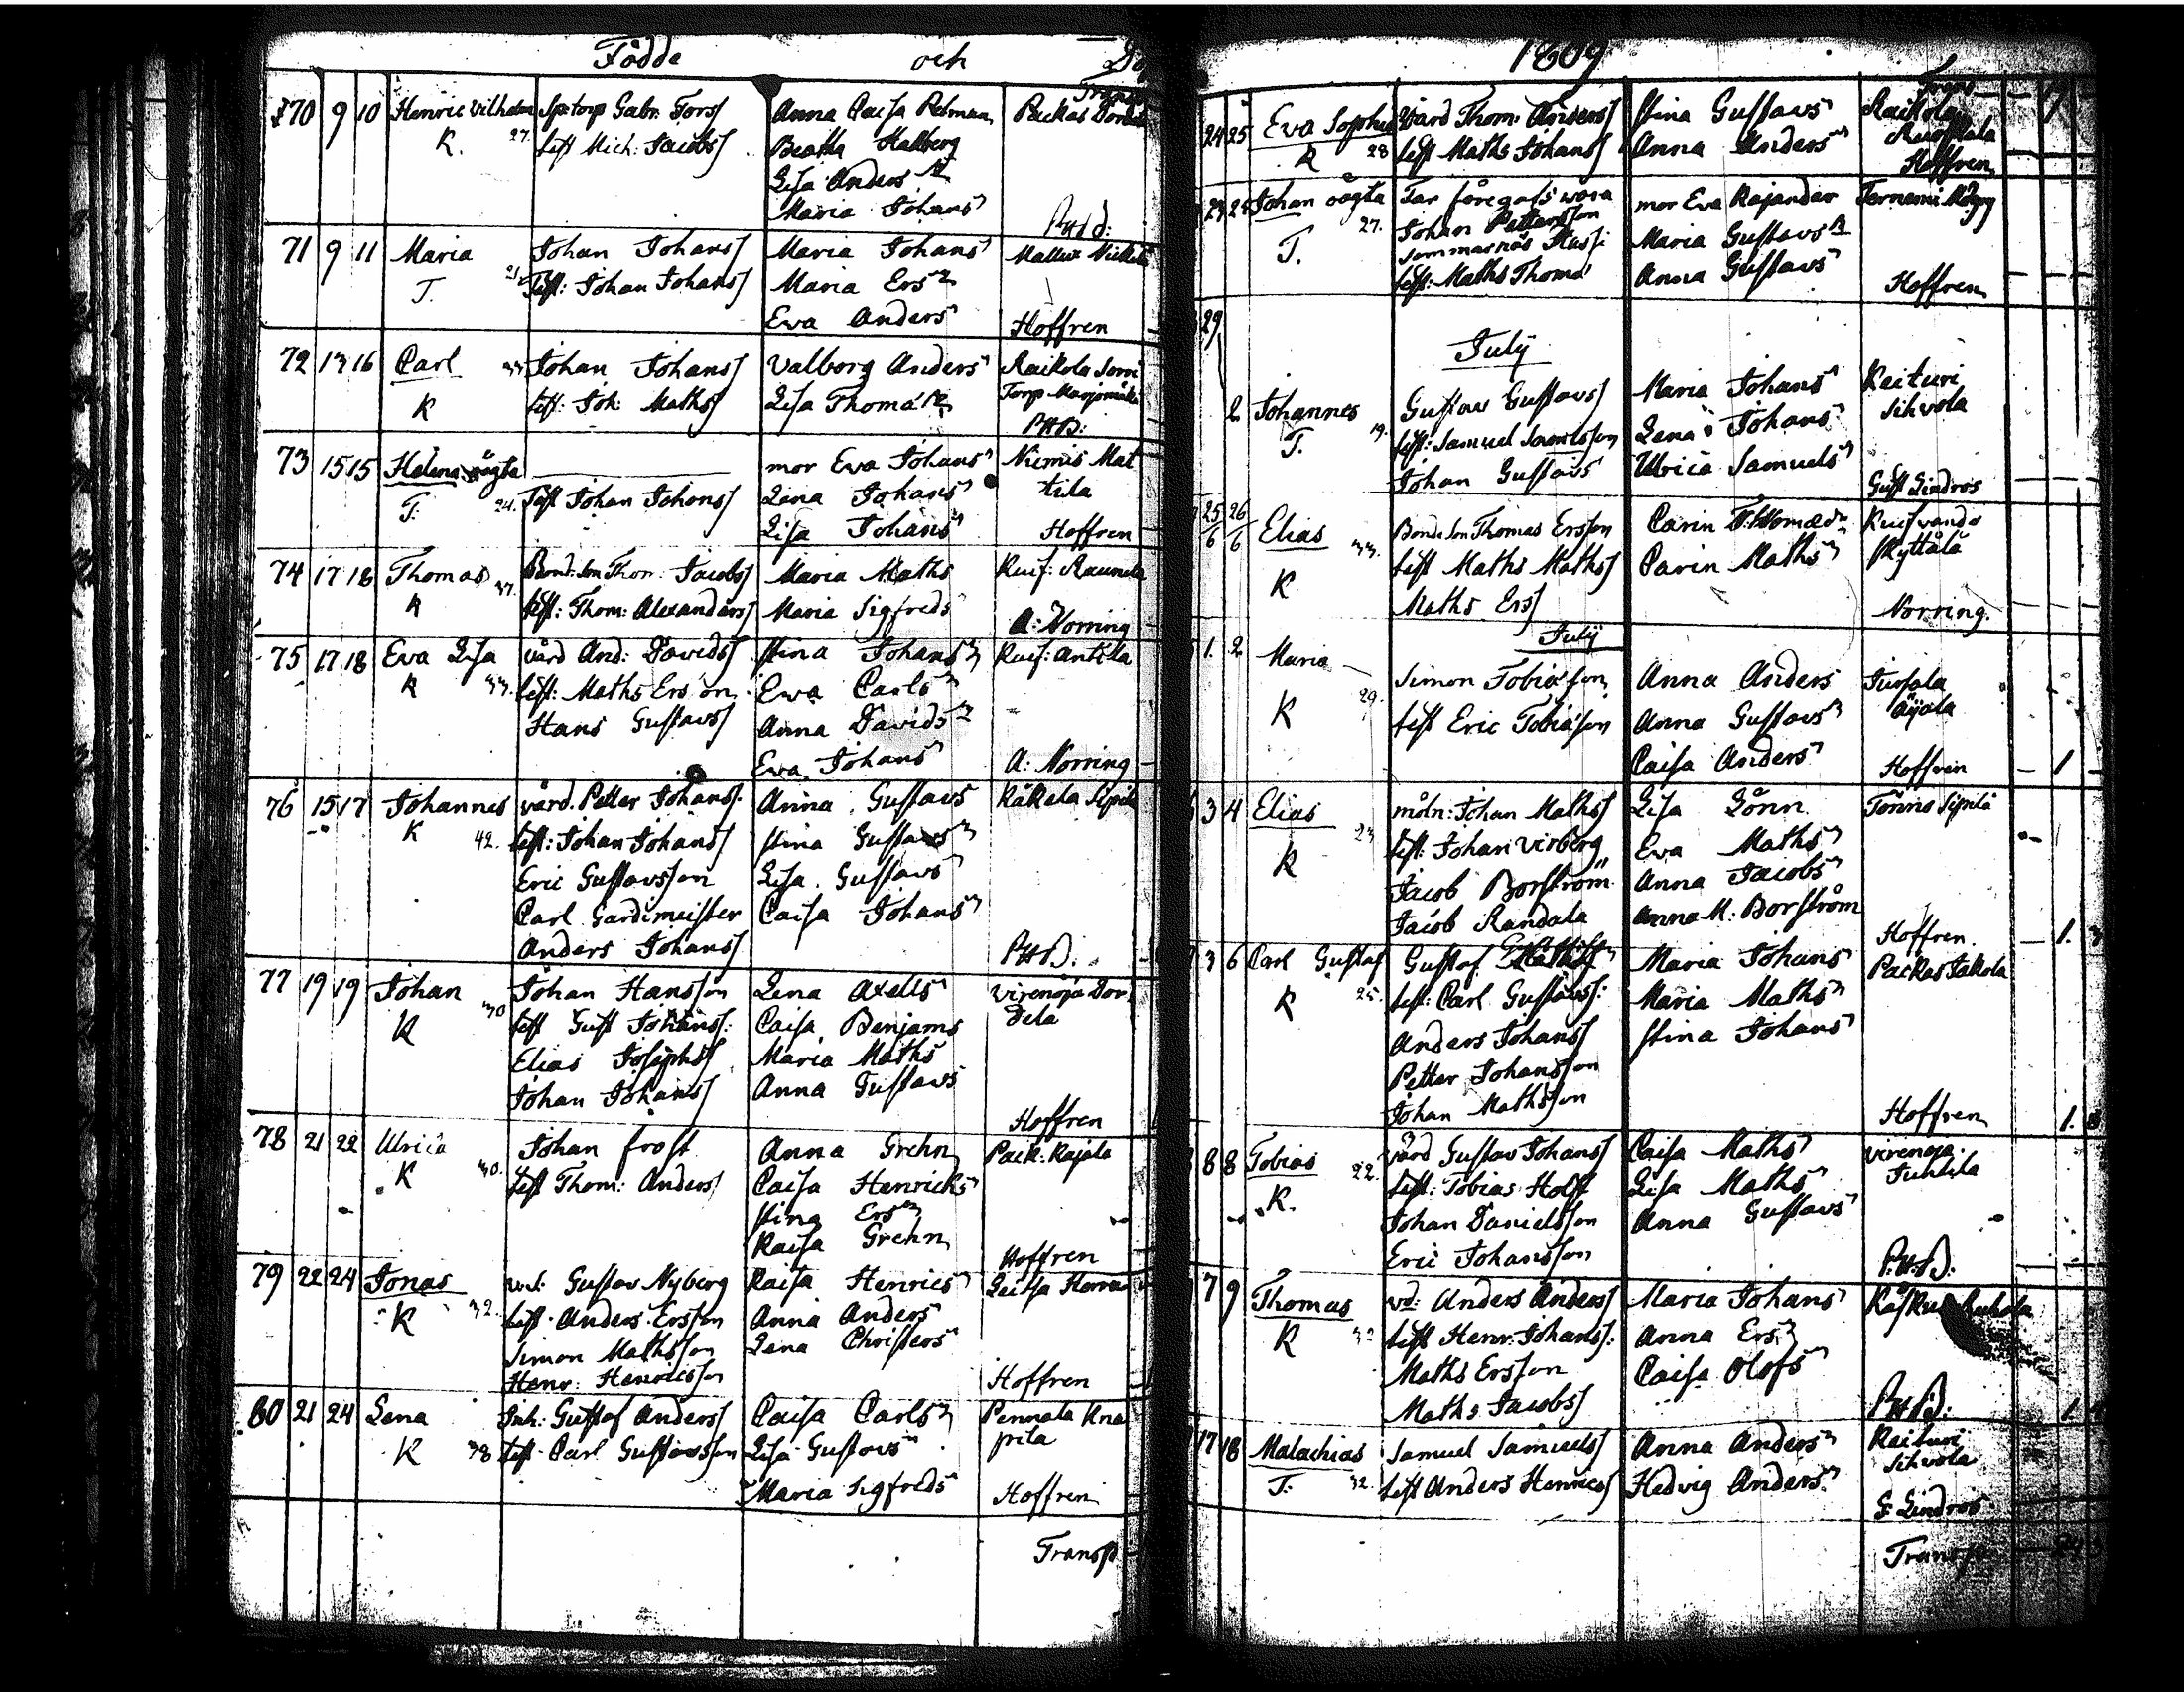 Födde och
70 9 10 Henric Vilhelm Sptorp Gabr: Fors Anna Caisa Packas
K. 27. test Mich: Jacobs Beatha Hallberg
Lisa Anders
Maria Johans
PHD:
71 9 11 Maria Johan Johans Maria Johans
T. Test: Johan Johans Maria Ers
Eva Anders Hoffren
72 13 16 Carl 33 Johan Johans Valborg Anders Raikola
K test: Joh: Maths Lisa Thoma Torp Marjomäki
PHD:
73 15 15 Helena oägta mor Eva Johans Niemis Mat
T. 24. Test Johan Johans Lena Johans tila
Lisa Johans Hoffren
74 17 18 Thomas 37. Bond. Son Thom: Jacobs Maria Maths Ruis: Raunela
K test: Thom: Alexanders Maria Sigfreds A: Norring
75 17 18 Eva Lisa vård And: Davids Stina Johans Ruis: Antila
K 33. test: Maths Ers on Ewa Carls
Hans Gustavs Anna Davids
Eva Johans A: Norring
76 15 17 Johannes vård. Petter Johans. Anna Gustavs Räkela Sipilä
K 42. test: Johan Johans Stina Gustavs
Eric Gustavsson Lisa Gustavs
Carl Gardimeister Caisa Johans
Anders Johans PHD:
77 19 19 Johan 30 Johan Hansson Lena Axells Virenoja Dor
K test Gust Johans: Caisa Benjams dela
Elias Josephs Maria Maths
Johan Johans Anna Gustavs
Hoffren
78 21 22 Ulrica Johan frost Anna Grehn Pack: Rajala
K 30. test Thom: Anders Caisa Henricks
Stina Ers
Kaisa Grehn Hoffren
79 22 24 Jonas Gustav Nyberg Kaisa Henrics
K 32. test. Anders Ersson Anna Anders
Simon Mathsson Lena Christers
Henr: Henricsson Hoffren
80 21 24 Lena Inh: Gustaf Anders Caisa Carls Pennala Kna
K 38 test Carl Gustavsson Lisa Gustavs pila
Maria Sigfreds Hoffren
Transp
1809
24 25 Eva Sophia Vård Thom: Anders Stina Gustavs Raikola
K 28 test Maths Johans Anna Anders
Hoffren
Johan oägta Far föregafs wara mor Eva Kajander
27. Johan Pettersson Maria Gustavs
T. Sommarnäs
test: Maths Thoma Anna Gustavs Hoffren
29
July
2 Johannes 19. Gustav Gustavs Maria Johans Kaituri
T. test: Samuel Samelsson Lena Johans Sihvola
Johan Gustavs Ulrica Samuels Gust Lindros
25/6 26/6 Elias 33. Bonde Son Thomas Ersson Carin Thomæd:
K test Maths Maths Carin Maths
Maths Ers Norring.
July
1. 2 Maria 29. Simon Tobiasson Anna Anders
K test Eric Tobiasson Anna Gustavs
Caisa Anders Hoffren 1
3 4 Elias 23 möln: Johan Maths Lisa Lönn Tönno Sipilä
K test: Johan Virberg Eva Maths
Jacob Borström Anna Jacobs
Jacob Randala Anna M: Borström Hoffren. 1.
3 6 Carl Gustaf Gustaf Maria Johans Packas Jakola
K 25. test: Carl Gustavs: Maria Maths
Anders Johans Stina Johans
Petter Johansson
Johan Mathsson Hoffren 1.
8 8 Tobias 22. Vård Gustav Johans Caisa Maths Virenoja
K. test: Tobias Holf Lisa Maths Juhtila
Johan Danielsson Anna Gustavs
Eric Johansson P:H:D:
7 9 Thomas vd: Anders Anders Maria Johans
K 32 test Henr: Johans: Anna Ers
Maths Ersson Caisa Olofs
Maths Jacobs PHD: 1.
17 18 Malachias Samuel Samuels Anna Anders Kaituri
T. 32. test Anders Henrics Hedvig Anders Sihvola
G Lindros